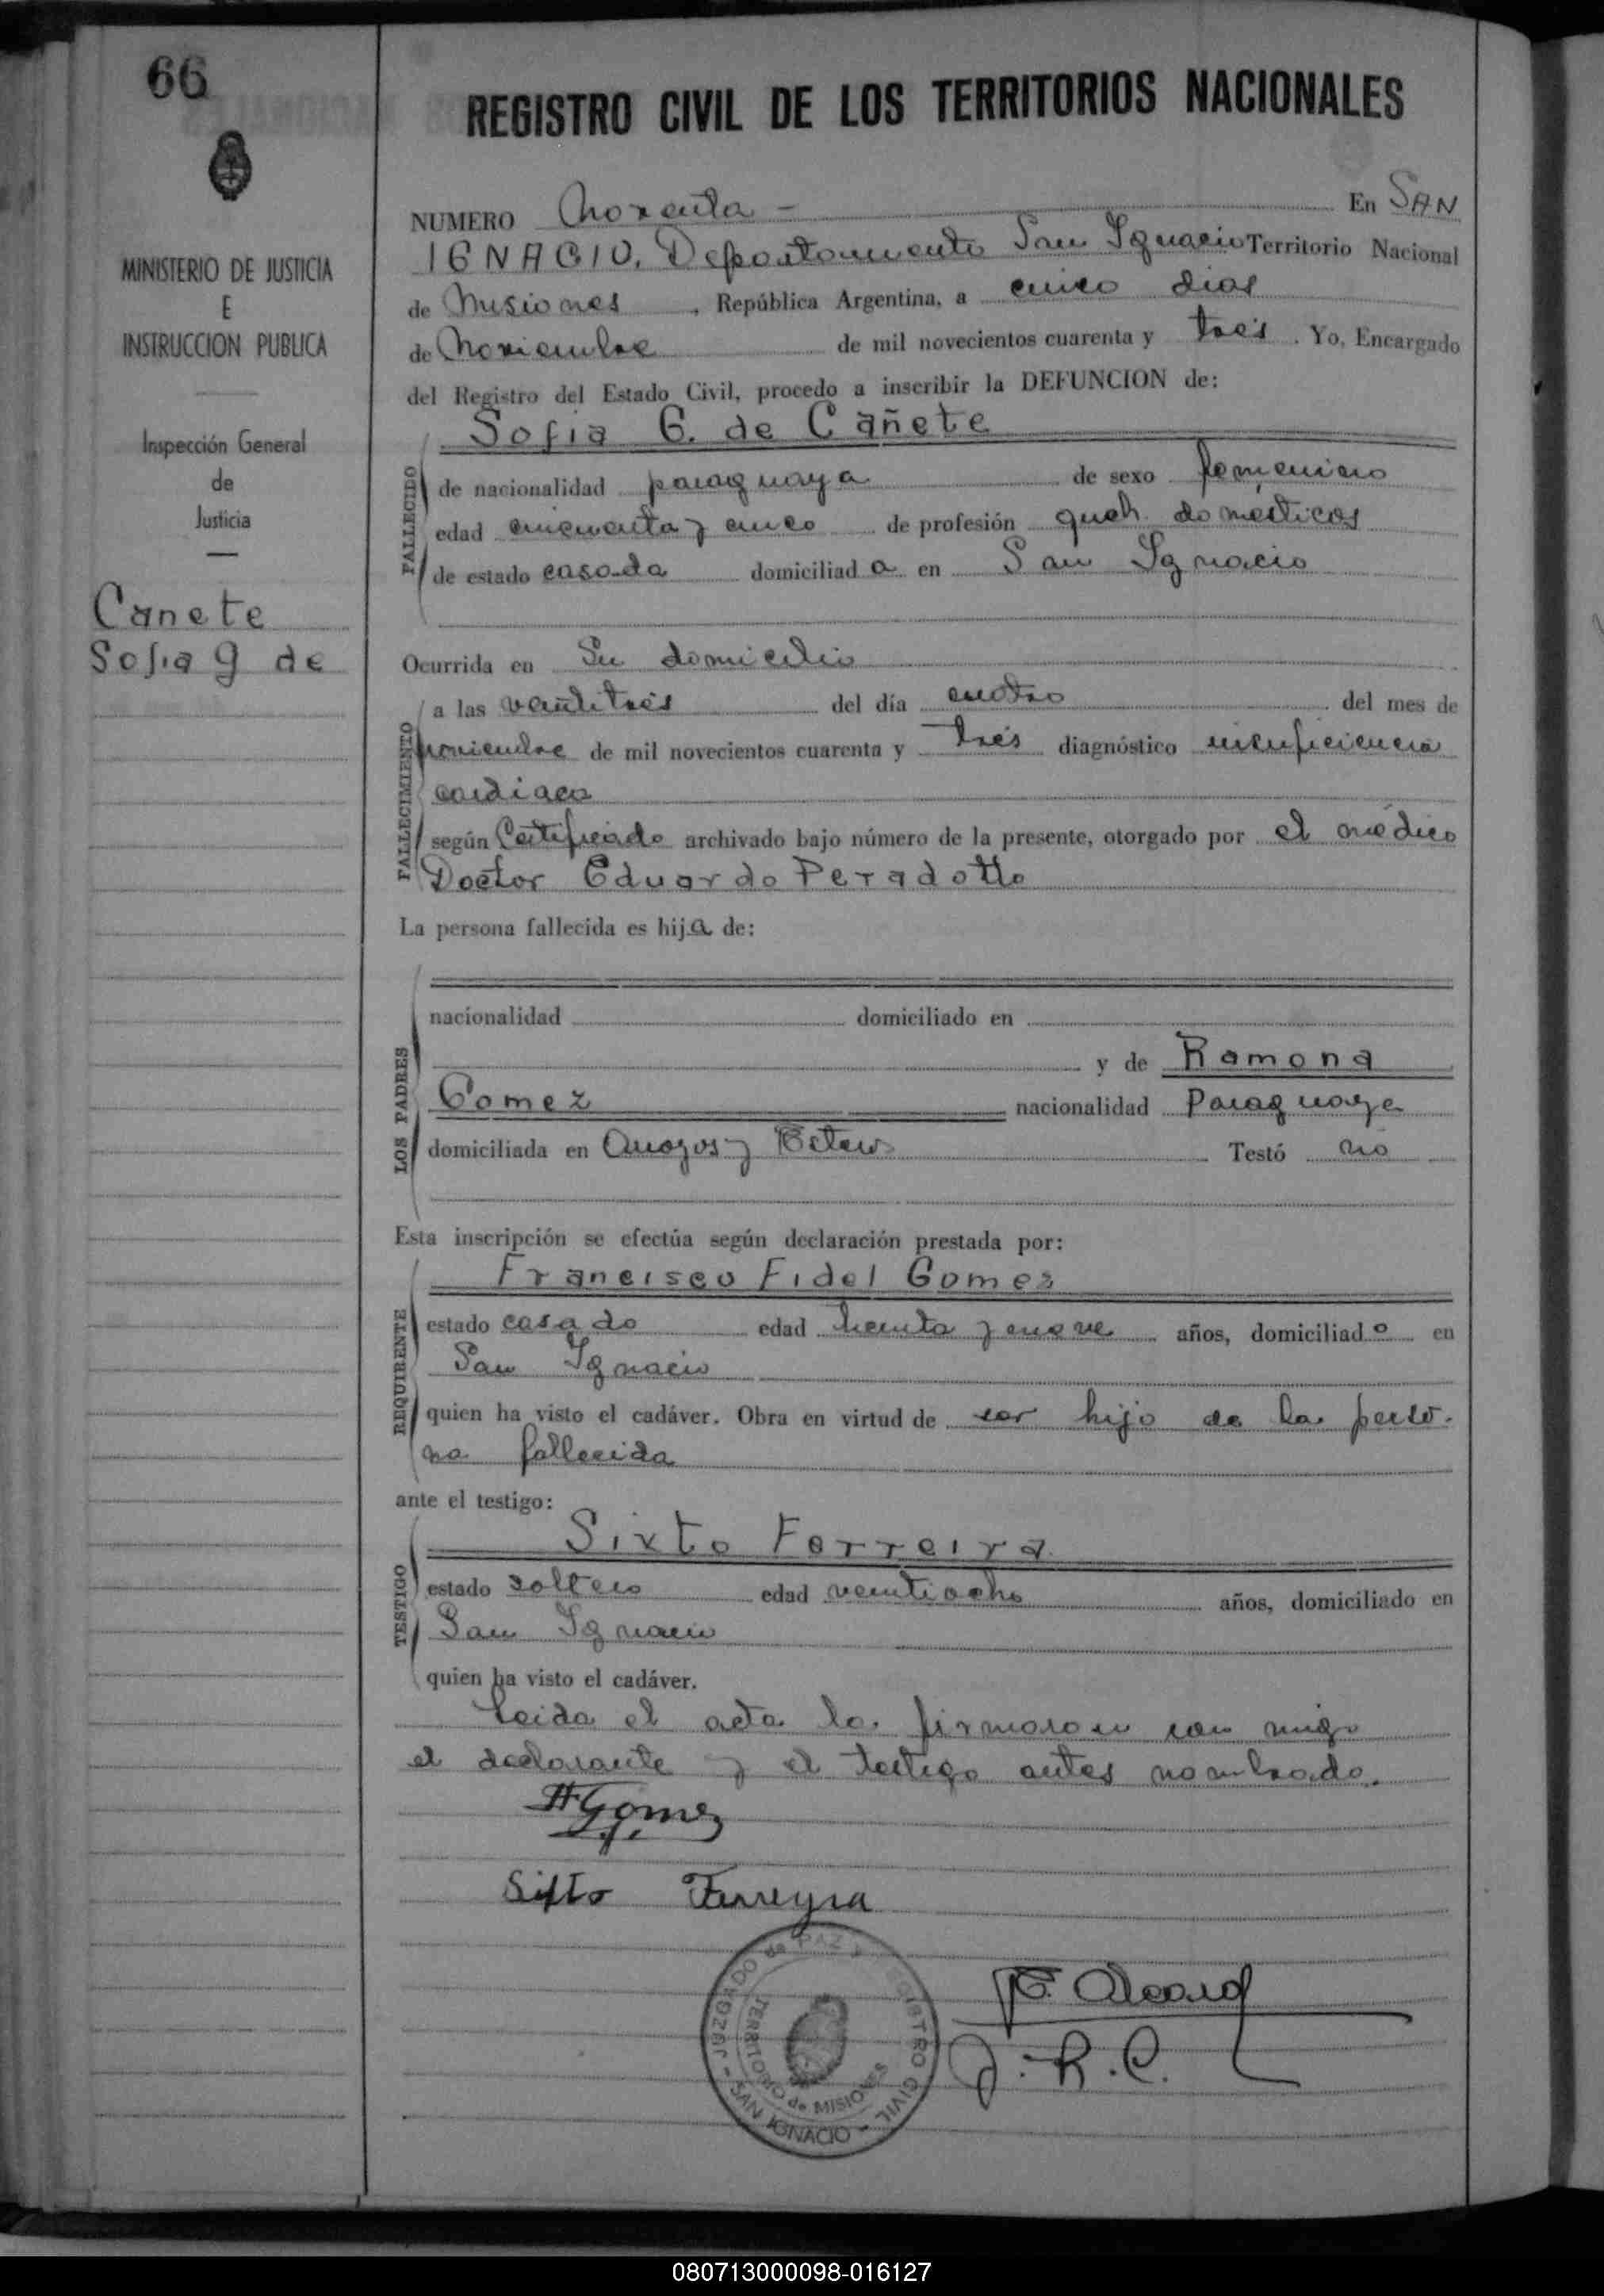 66
REGISTRO CIVIL DE LOS TERRITORIOS NACIONALES
MINISTERIO DE JUSTICIA
E
INSTRUCCION PUBLICA
Inspección General
de
Justicia
Canete
Sofia G de
NUMERO Noventa - En SAN
IGNACIO. Departamento San Ignacio Territorio Nacional
de Misiones, República Argentina, a cinco dias
de Noviembre de mil novecientos cuarenta y trés. Yo, Encargado
del Registro del Estado Civil, procedo a inscribir la DEFUNCION de:
Sofia G. de Cañete
FALLECIDO
de nacionalidad paraguaya de sexo femenino
edad cincuenta y cinco de profesión queh. domesticos
de estado casada domiciliada en San Ignacio
Ocurrida en Su domicilio
FALLECIMIENTO
a las veintitrés del día cuatro del mes de
noviembre de mil novecientos cuarenta y trés diagnóstico insuficiencia
cardiaca
según Certificado archivado bajo número de la presente, otorgado por el médico
Doctor Eduardo Peradotto
La persona fallecida es hija de:
LOS PADRES
nacionalidad domiciliado en
y de Ramona
Gomez nacionalidad Paraguaya
domiciliada en Testó no
Esta inscripción se efectúa según declaración prestada por:
REQUIRENTE
Francisco Fidel Gomez
estado casado edad treinta y nueve años, domiciliado en
San Ignacio
quien ha visto el cadáver. Obra en virtud de ser hijo de la perso-
na fallecida
ante el testigo:
TESTIGO
Sixto Ferreira
estado soltero edad veintiocho años, domiciliado en
San Ignacio
quien ha visto el cadáver.
Leida el acta la firmaron con migo
el declarante y el testigo antes nombrado.
Gomez
Sixto Ferreyra
JUZGADO de PAZ y REGISTRO CIVIL - SAN IGNACIO -
TERRITORIO de MISIONES
J.R.C.
080713000098-016127